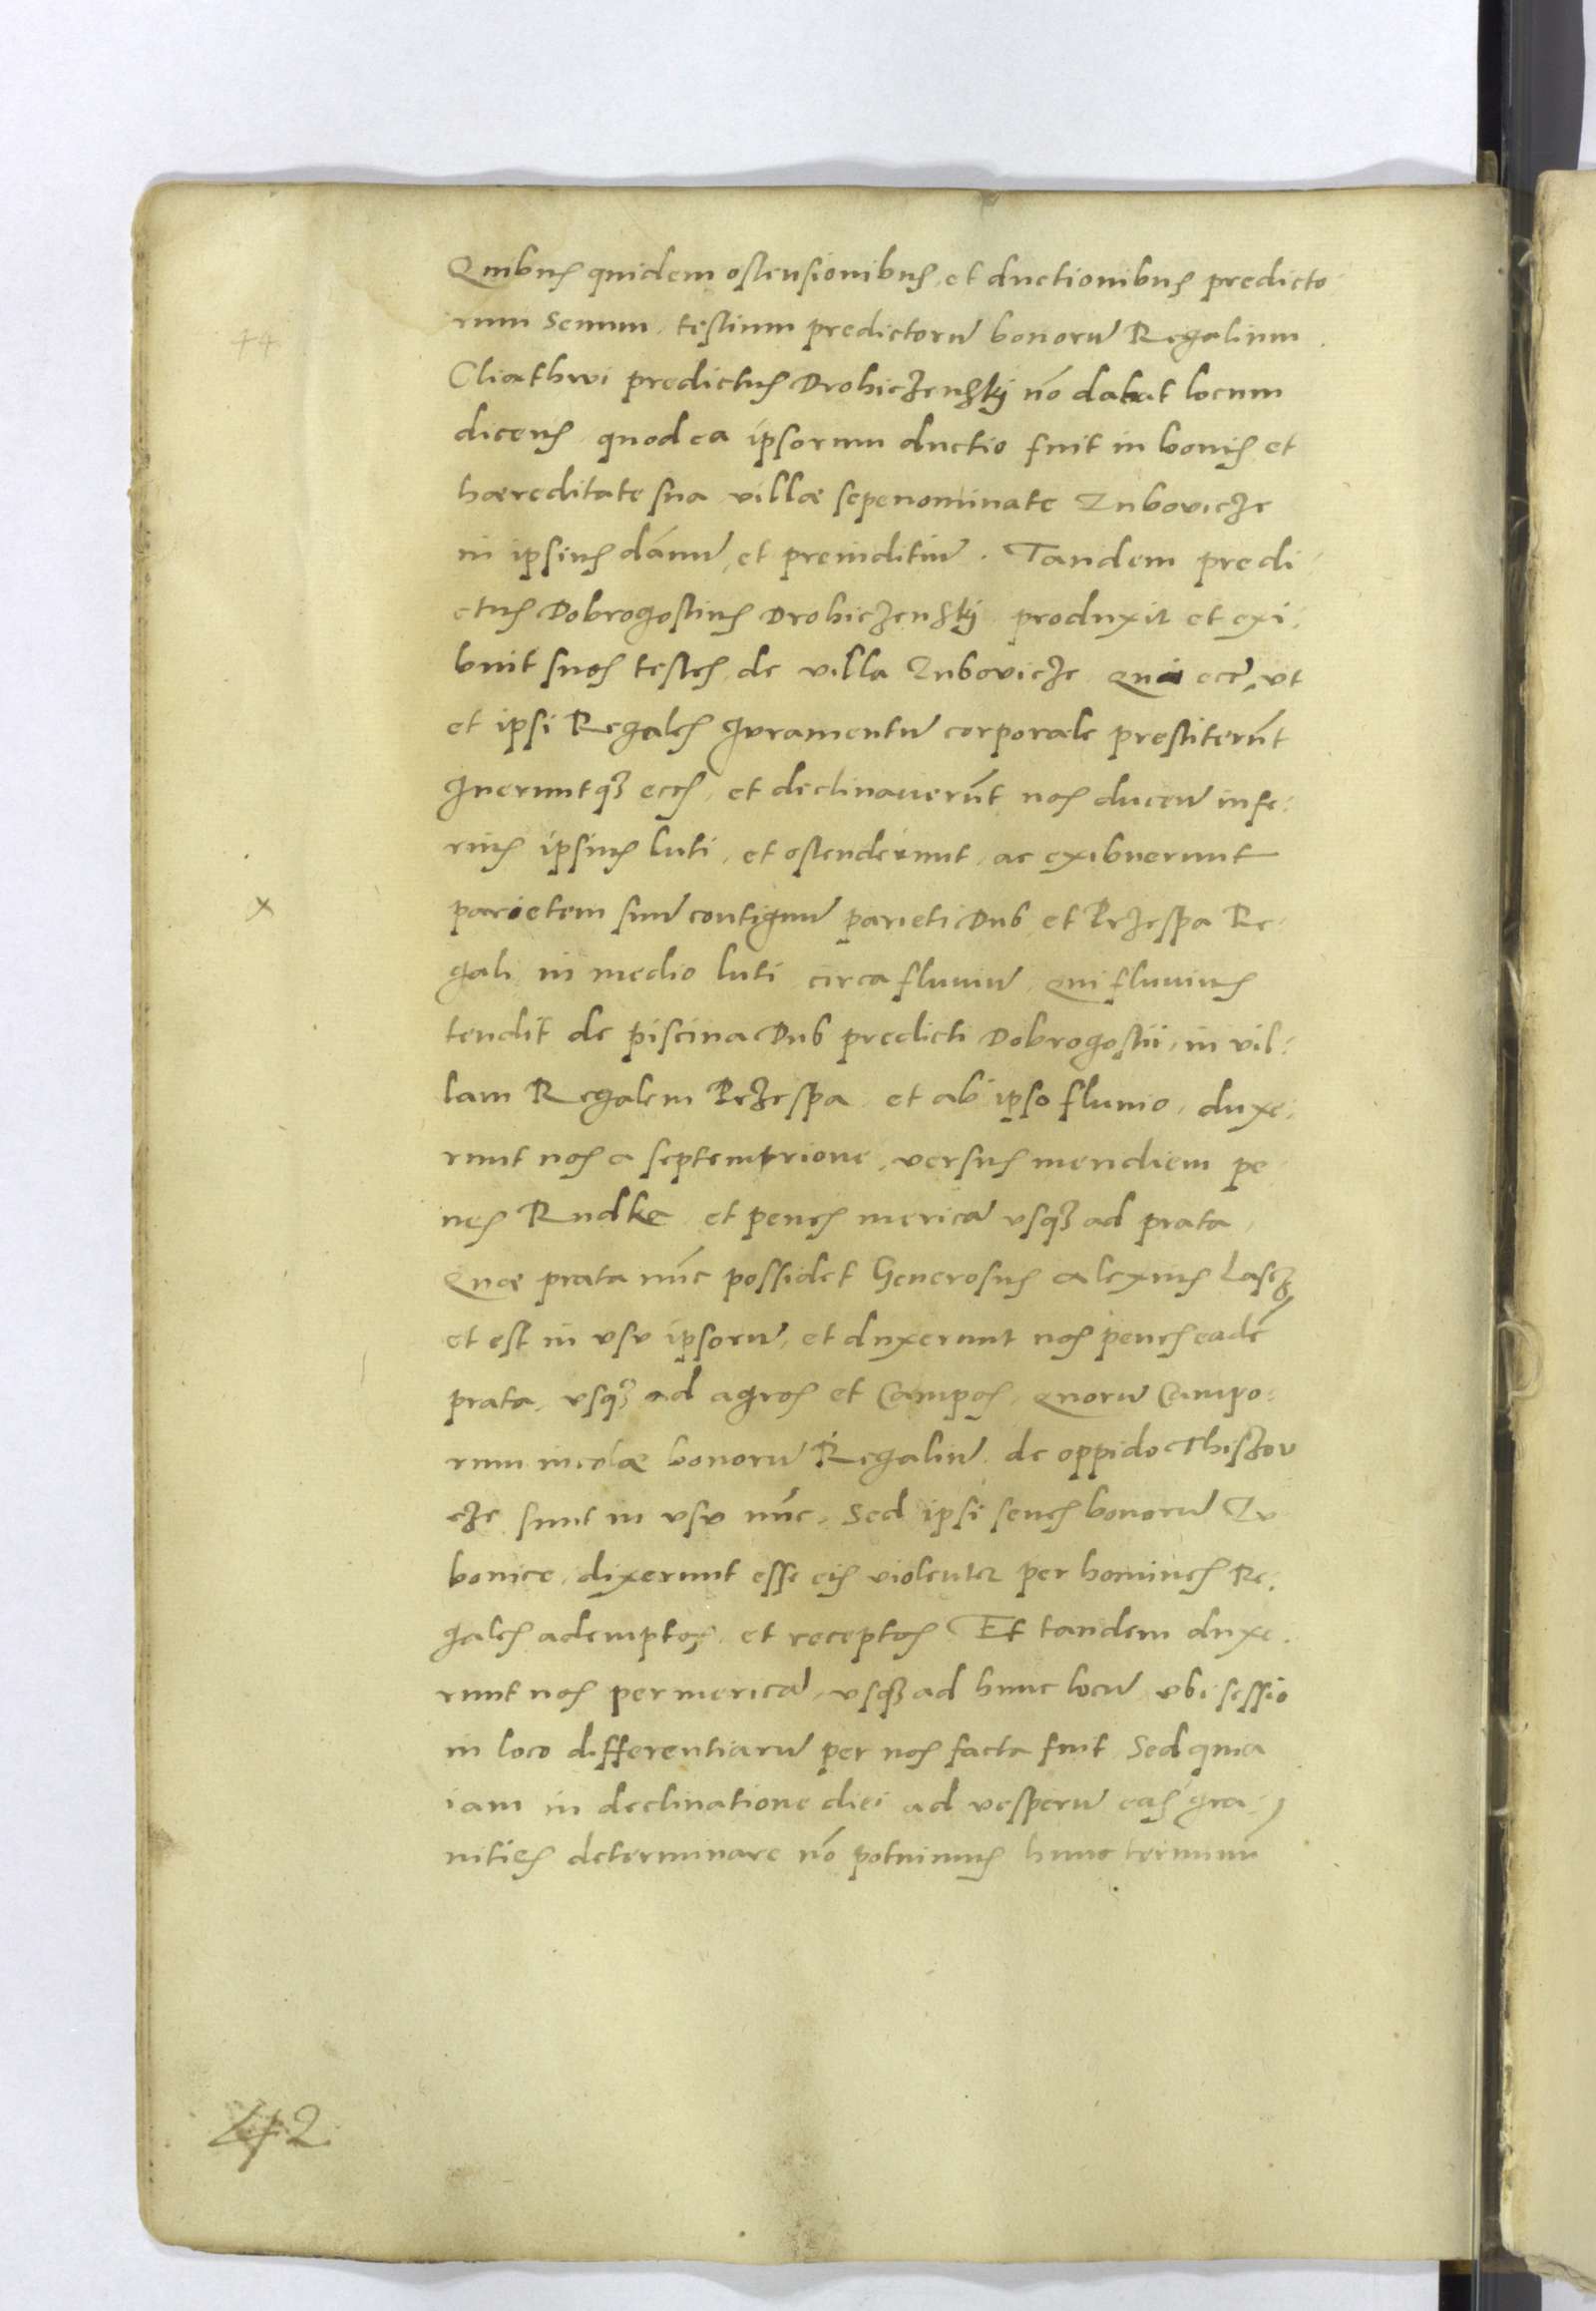 Quibus quidem ostensionibus et ductionibus predicto
rum Senum testium predictorũ bonorũ Regalium
Cliathwi predictus Drohiczenski nõ dabat locum
dicens quod ea ipsorum ductio fuit in bonis et
hæreditate sua villæ sepenominate Zubovicze
in ipsius dãnũ et preiuditiũ. Tandem predi
ctus Dobrogostius Drohiczenskij produxit et exi:
buit suos testes de villa Zubovicze Qui ut
et ipsi Regales Juramentũ corporale prestiterũt
Iveruntqȝ et declinaverũt nos ducen infe:
rius ipsius luti, et ostenderunt ac exibuerunt
parietem suũ contiguũ parieti Dub et Przespa Re:
gali in medio luti circa fluviũ Qui fluvius
tendit de piscina Dub predicti Dobrogostii in vil:
lam Regalem Przespa et ab ipso fluvio duxe:
runt nos a septemtrione versus meridiem pe
nes Rudke et penes mericã usqȝ ad prata
Quæ prata nũc possidet Generosus Alexius Lascz
et est in usu ipsorũ, et duxerunt nos penes eadẽ
prata usqȝ ad agros et Campos, quorũ Campo:
rum incolæ bonorũ Regaliũ de oppido Thiszov
cze sunt in usu nũc, Sed ipsi senes bonorũ Zu
bovice dixerunt esse eis violenter per homines Re:
gales ademptos et receptos Et tandem duxe:
runt nos per mericã usqȝ ad hunc locũ ubi sessio
in loco differentiarũ per nos facta fuit Sed quia
iam in declinatione diei ad vesperũ eas gra:
nities determinare nõ potuimus hunc terminũ
x
44
242